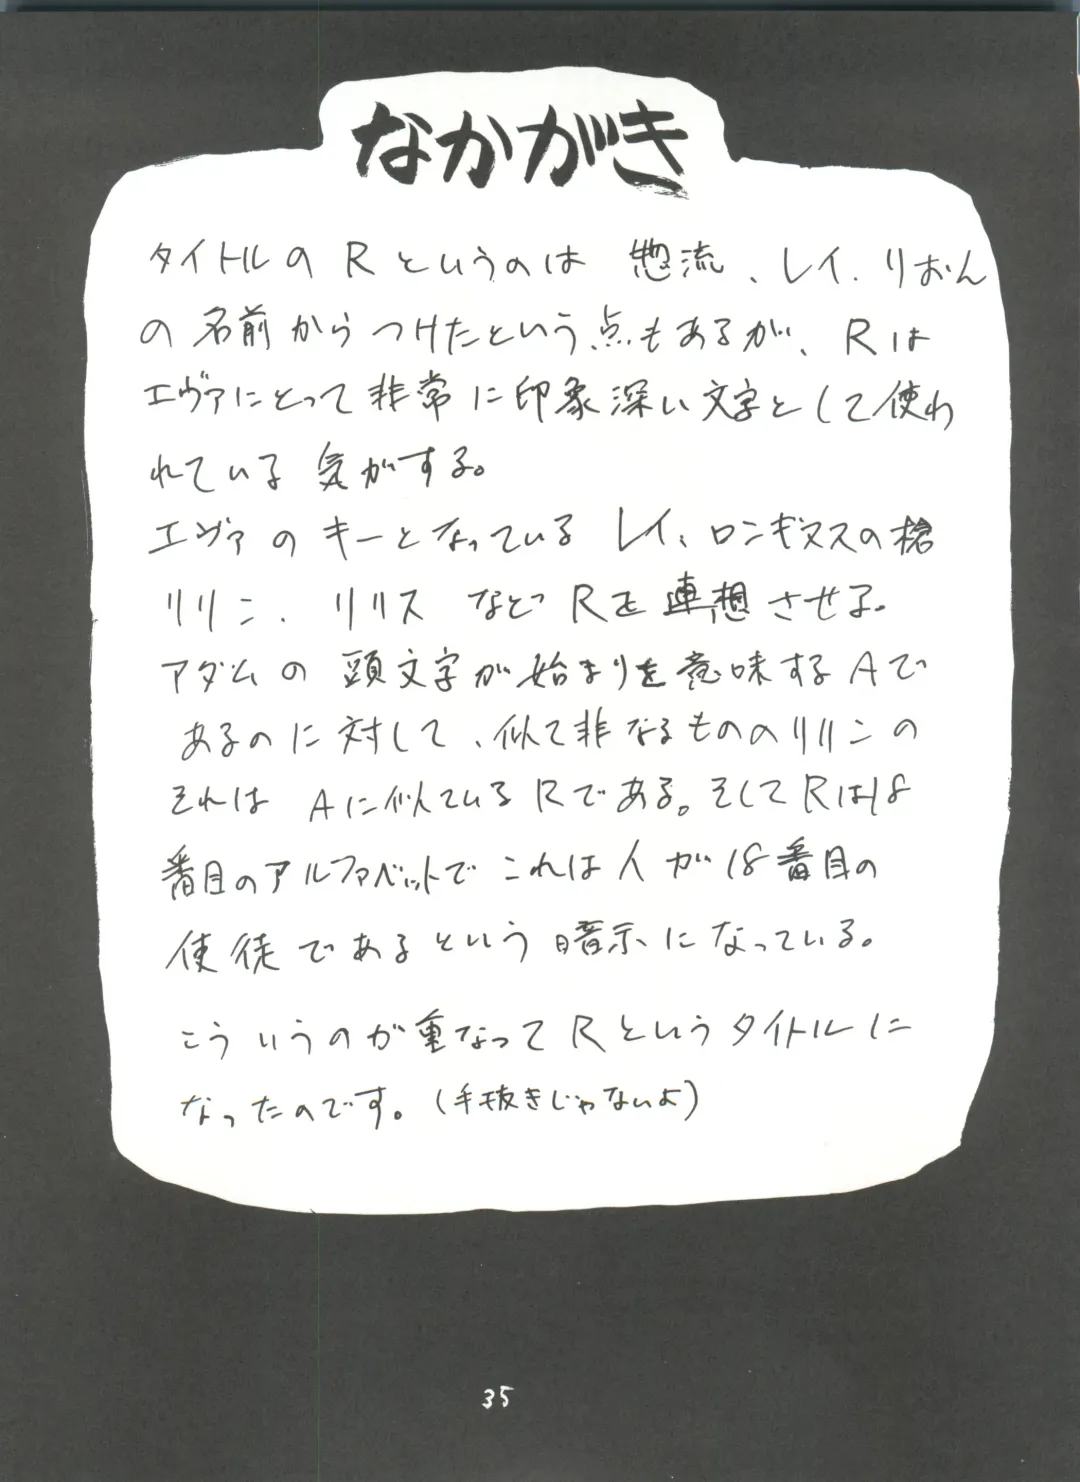 なかがき
タイトルの R というのは 惣流、レイ、りおん
の 名前 から つけた という 点もあるが、Rは
エヴァにとって 非常 に 印象深い 文字として 使わ
れている 気がする。
エヴァ の キーとなっている レイ、ロンギヌスの槍
リリン、リリス など Rを 連想 させる。
アダムの 頭文字が 始まりを 意味する Aで
あるのに 対して、似て非なるもののリリンの
それは Aに似ている Rである。そして Rは18
番目のアルファベットで これは人 が 18番目の
使徒 である という 暗示 に なっている。
こういうのが 重なって Rという タイトルに
なったのです。(手抜きじゃないよ)
35